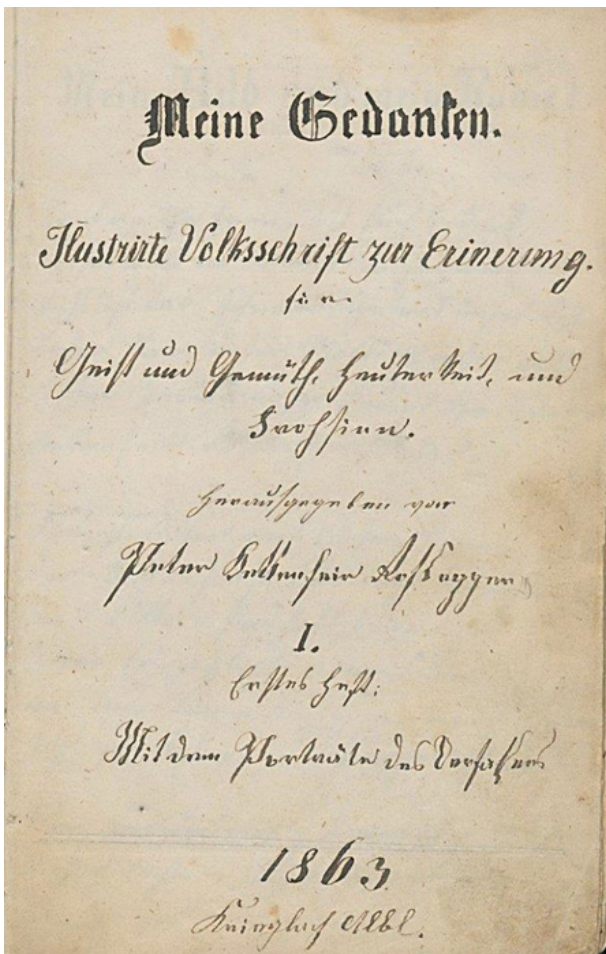 Meine Gedanken.
Ilustrirte Volksschrift zur Erinerung.
für
Geist und Gemüth, Heuterkeit, und
Frohsinn.
Herausgegeben von
Peter Kettenfeir Roßegger
I.
Erstes Heft:
Mit dem Porträte des Verfaßers
1863
Krieglach Alpl.